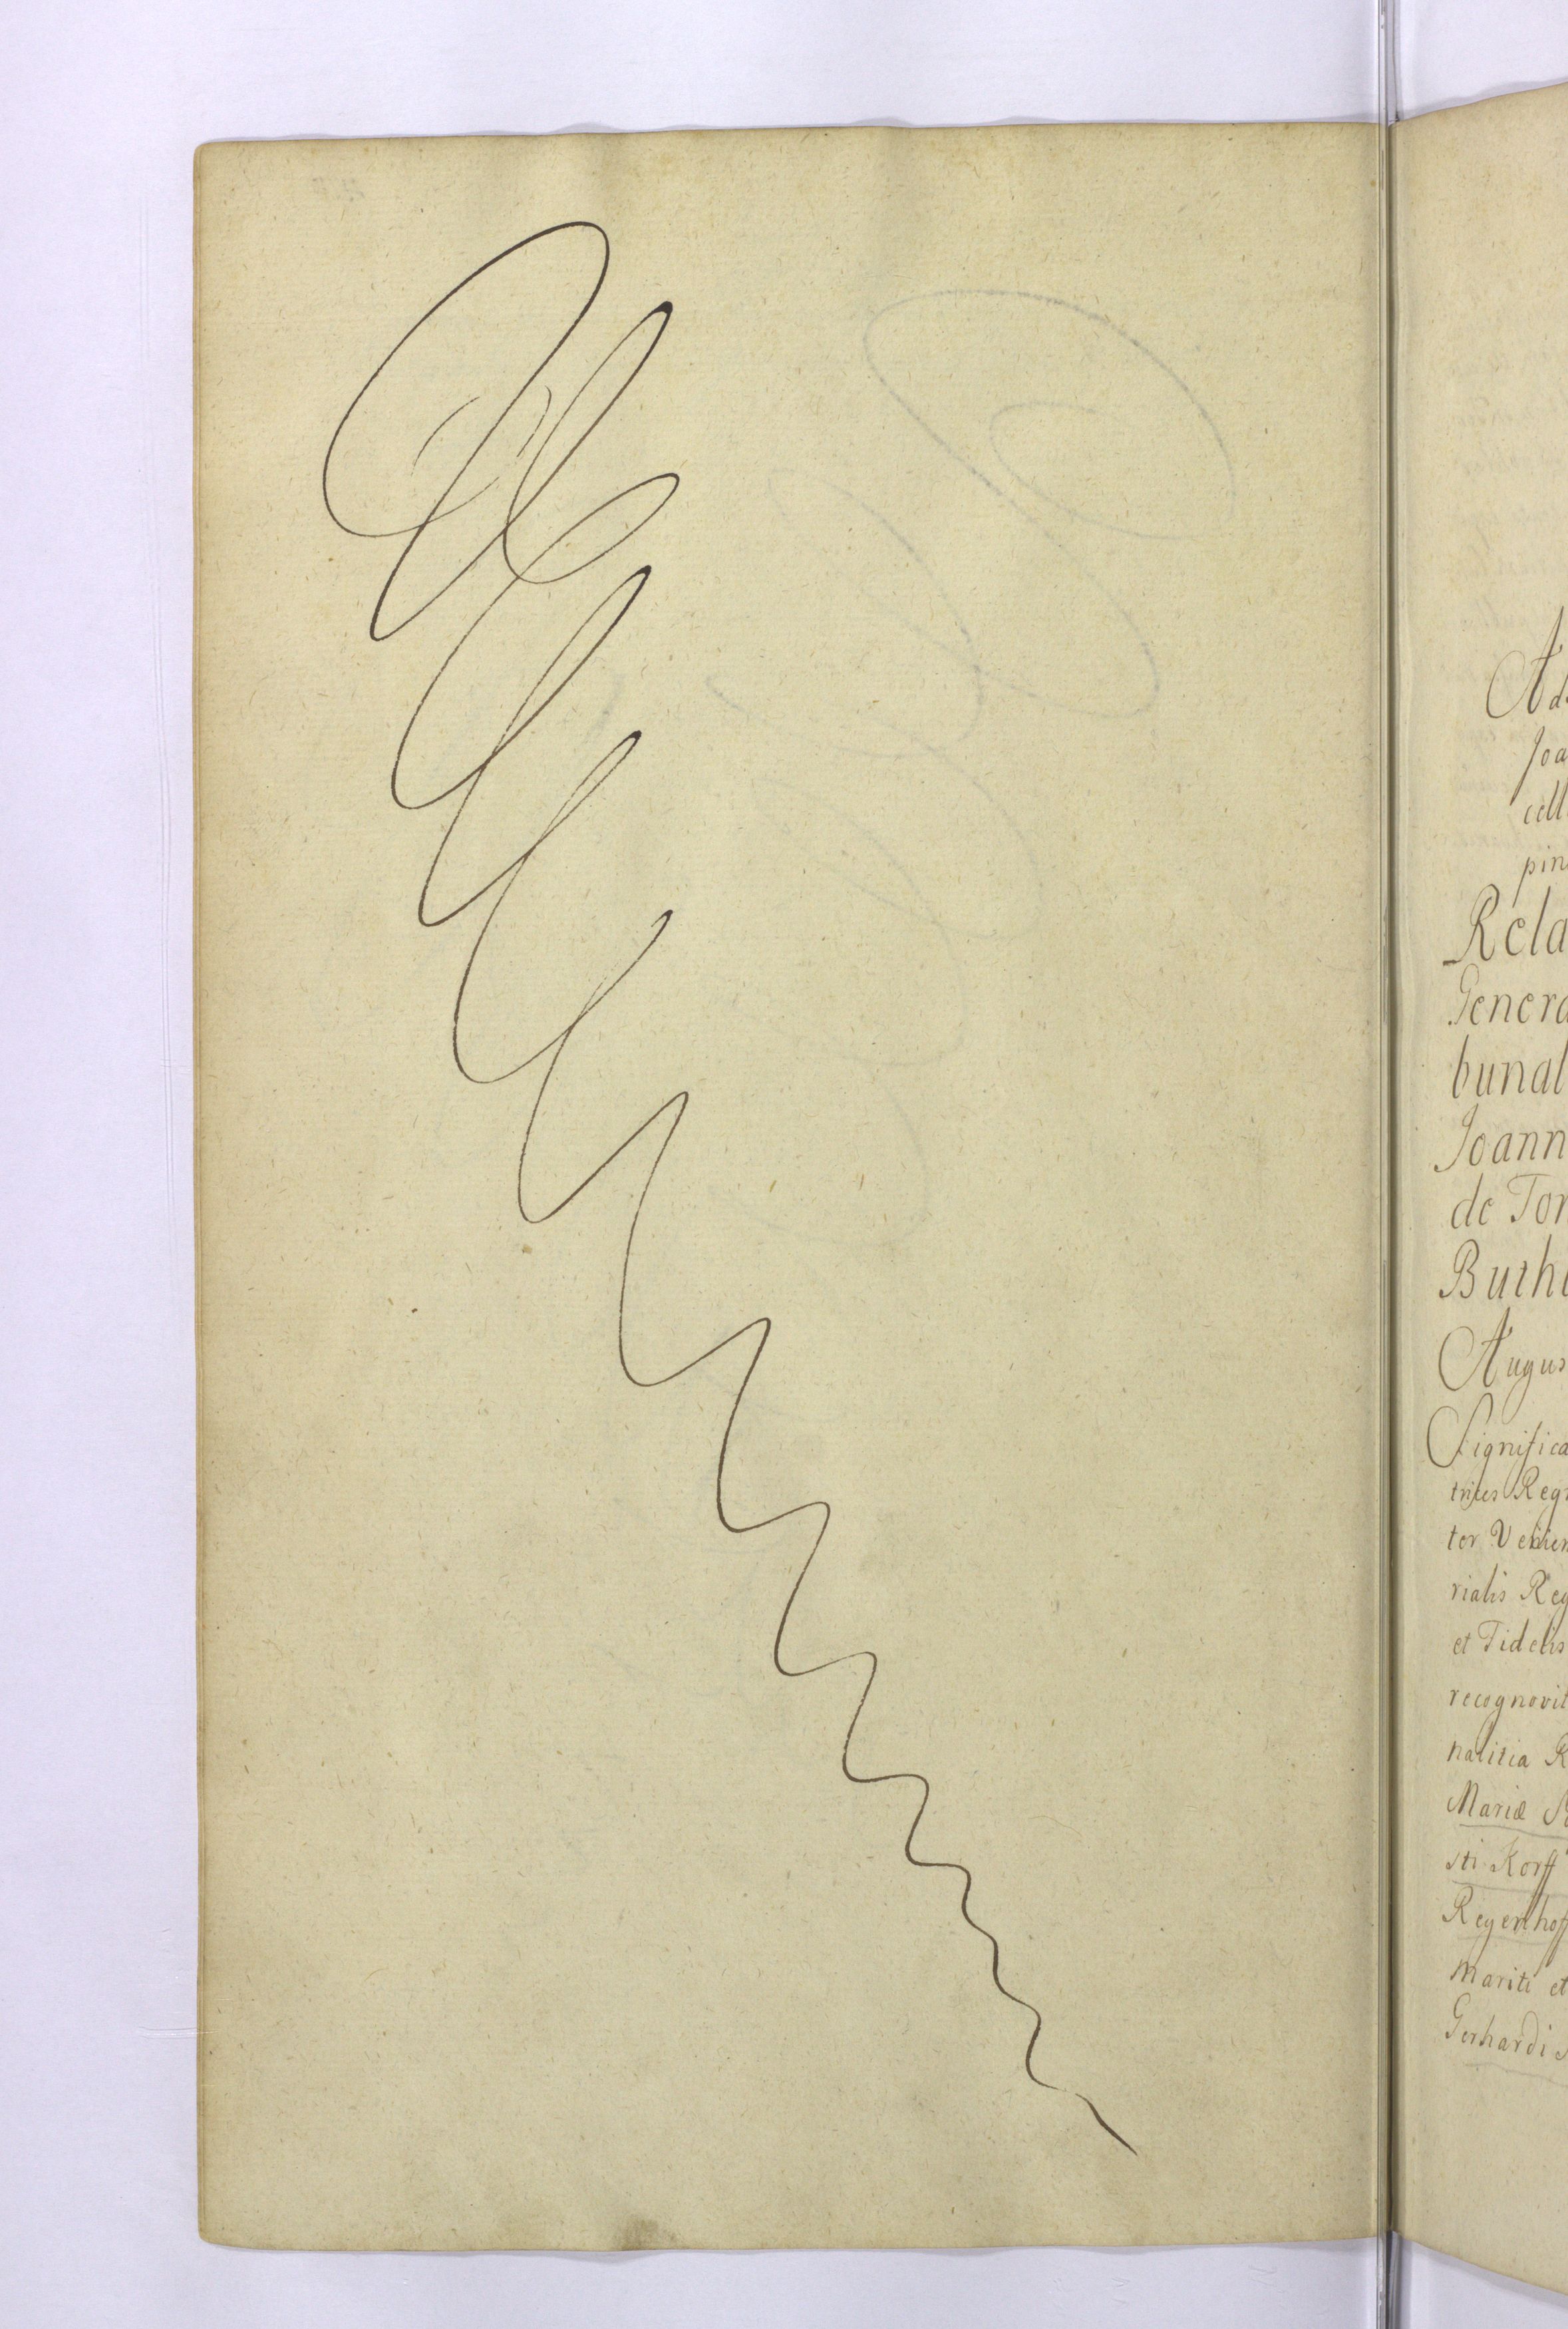 Ad
Joa
cell
pin
Rela
Genera
bunal
Joann
de Tor
Buth
Augus
Significa
trices Reg
tor Venien
rialis Reg
et Fidelis
recognovit
nalitia R
Mariæ
sti Korff
Reyenhof
Mariti et
Gerhardi